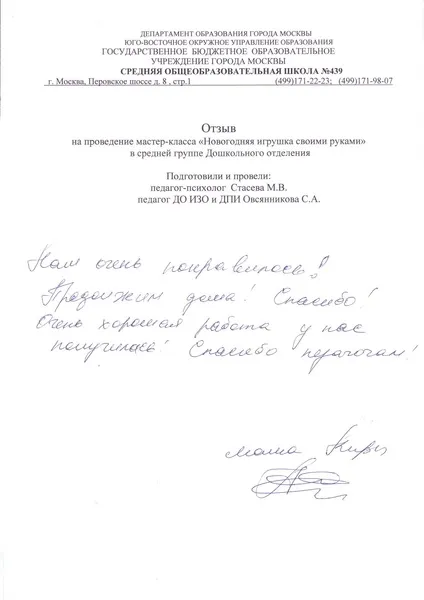 ДЕПАРТАМЕНТ ОБРАЗОВАНИЯ ГОРОДА МОСКВЫ
ЮГО-ВОСТОЧНОЕ ОКРУЖНОЕ УПРАВЛЕНИЕ ОБРАЗОВАНИЯ
ГОСУДАРСТВЕННОЕ БЮДЖЕТНОЕ ОБРАЗОВАТЕЛЬНОЕ
УЧРЕЖДЕНИЕ ГОРОДА МОСКВЫ
СРЕДНЯЯ ОБЩЕОБРАЗОВАТЕЛЬНАЯ ШКОЛА №439
г. Москва, Перовское шоссе д. 8 , стр.1 (499)171-22-23; (499)171-98-07
Отзыв
на проведение мастер-класса «Новогодняя игрушка своими руками»
в средней группе Дошкольного отделения
Подготовили и провели:
педагог-психолог Стасева М.В.
педагог ДО ИЗО и ДПИ Овсянникова С.А.
Нам очень понравилось!
Продолжим дома! Спасибо!
Очень хорошая работа у нас
получилась! Спасибо педагогам!
мама Киры